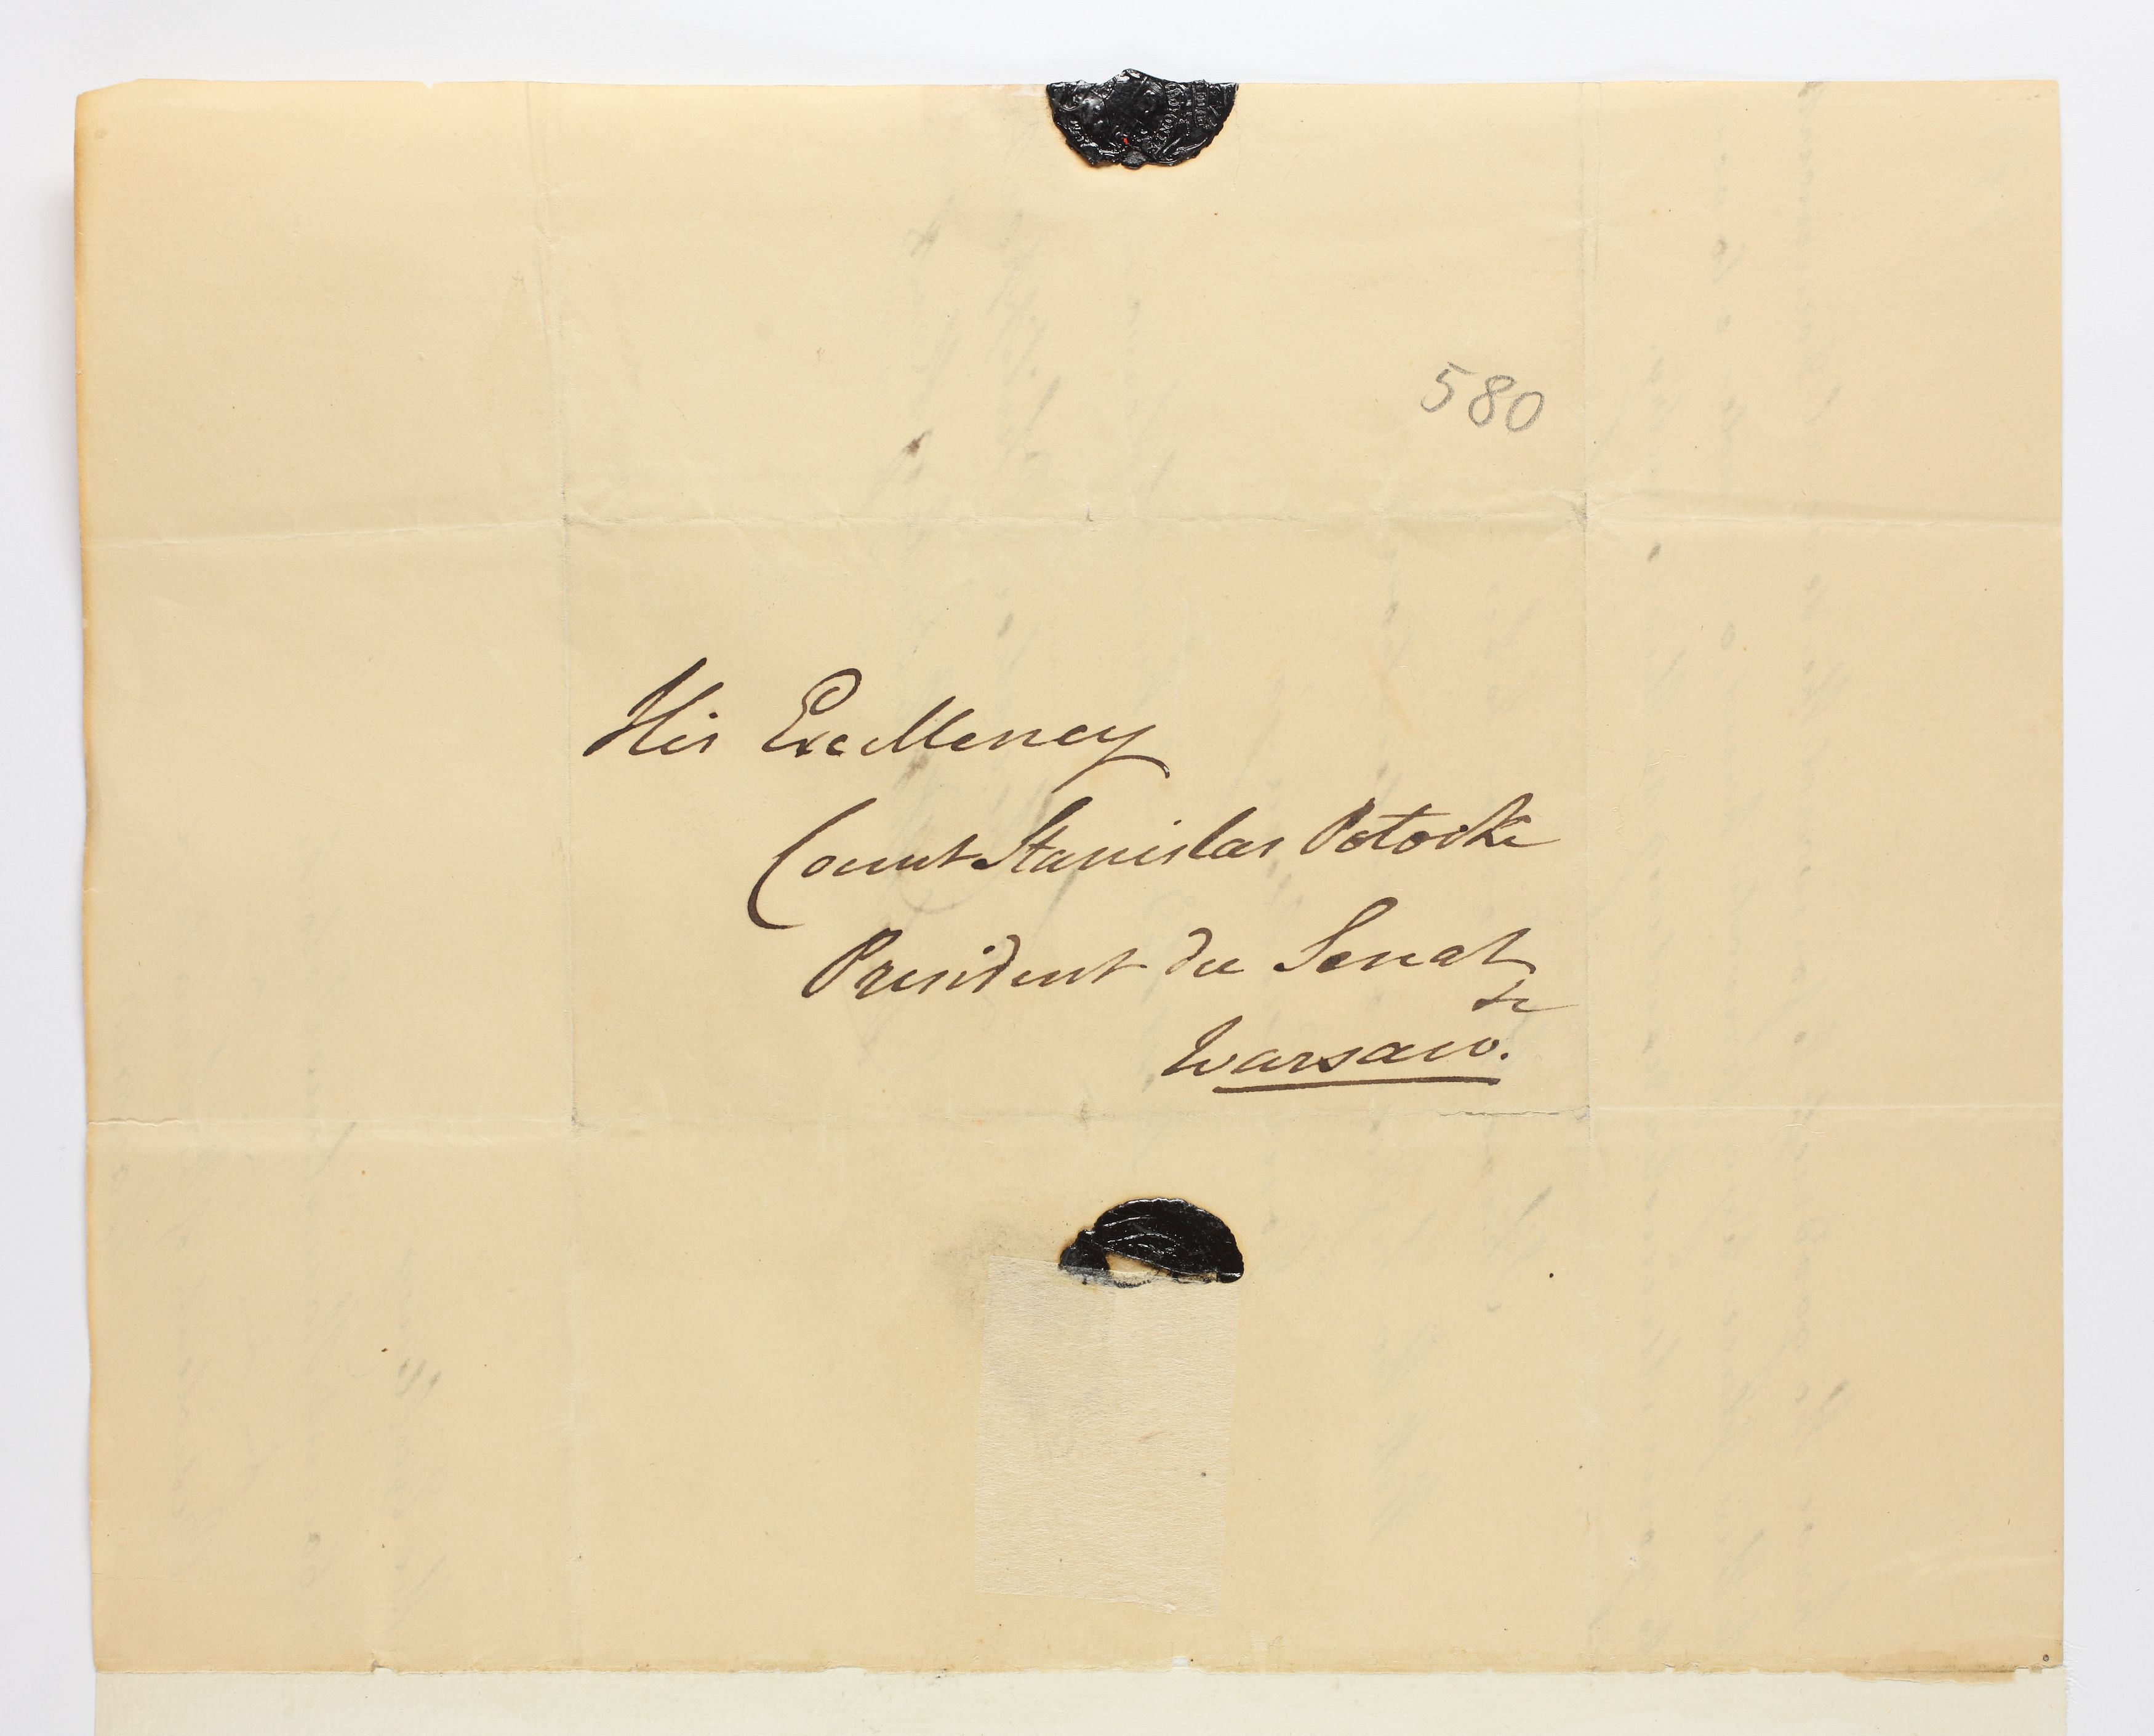 580
His Excellency
Count Stanislas Potocki
President du Senat
&c
Warsaw.